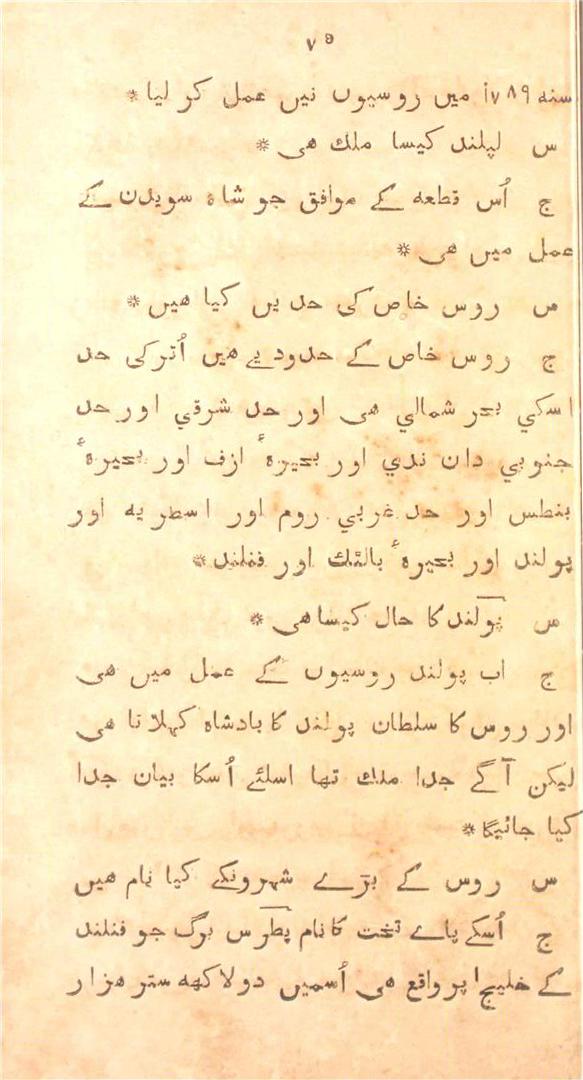 ٧٩
سنه ١٧٨٩ میں روسیوں نیں عمل کر لیا *
س لپلند کیسا ملك هی *
ج اُس قطعه کے موافق جو شاه سویدن کے
عمل میں هی *
س روس خاص کی حدیں کیا هیں *
ج روس خاص کے حدود یے هیں اُتر کی حد
اسکي بحر شمالي هی اور حد شرقي اور حد
جنوبي دان ندي اور بحیرهٔ ازف اور بحیرهٔ
بنطس اور حد غربي روم اور اسطریه اور
پولند اور بحیرهٔ بالتك اور فنلند *
س پولند کا حال کیسا هی *
ج اب پولند روسیوں کے عمل میں هی
اور روس کا سلطان پولند کا بادشاه کہلاتا هی
لیکن آگے جدا ملك تها اسلئے اُسکا بیان جدا
کیا جائیگا *
س روس کے بڑے شہرونکے کیا نام هیں
ج اُسکے پاے تخت کا نام پطرس برگ جو فنلند
کے خلیج پر واقع هی اُسمیں دو لاکهه ستر هزار